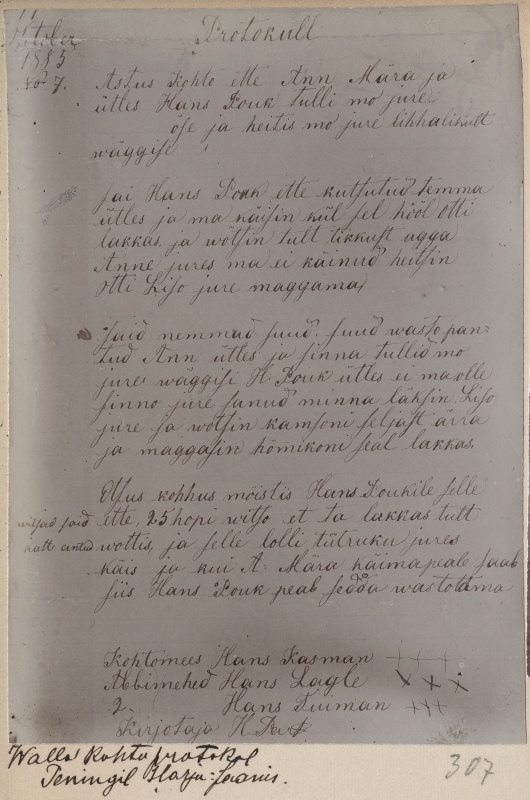 Protokull
11
October
1885
No 7.
Astus Kohto ette Ann Mära ja
ütles Hans Pouk tulli mo jure
öse ja heitis mo jure lihhalikult
wäggisi
Sai Hans Pouk ette kutsutud temma
ütles ja ma käisin kül sel hööl Otti
lakkas ja wötsin tult tikkust agga
Anne jures ma ei käinud heitsin
Otti Liso jure maggama,
Said nemmad suud suud wasto pan-
tud Ann ütles ja sinna tullid mo
jure wäggisi H. Pouk ütles ei ma olle
sinno jure sanud minna läksin Liso
jure ja wötsin kamsoni seljast ärra
ja maggasin hömikoni seal lakkas,
Otsus kohhus möistis Hans Poukile selle
ette, 25 hopi witso et ta lakkas tult
wottis, ja selle lolli tütruku jures
käis ja kui A. Mära käima peale saab
siis Hans Pouk peab sedda wastotama
witsad said
katt antud
Kohtomees Hans Kasman + + +
Abbimehed Hans Lagle x x x
2. Hans Tiuman + + +
Kirjotaja H.
Walla Kohto protokol
Peningil Harju-Jaanis.
307